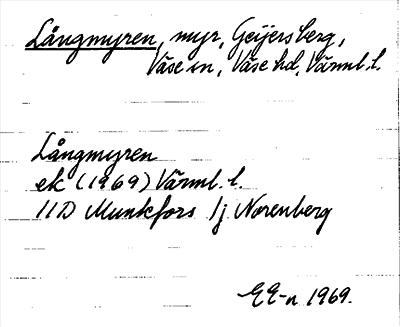 Långmyren, myr, Geijersberg,
Väse sn, Väse hd, Värml. l.
Långmyren
ek (1969) Värml. l.
11D Munkfors 1j Norenberg
EE-n 1969.